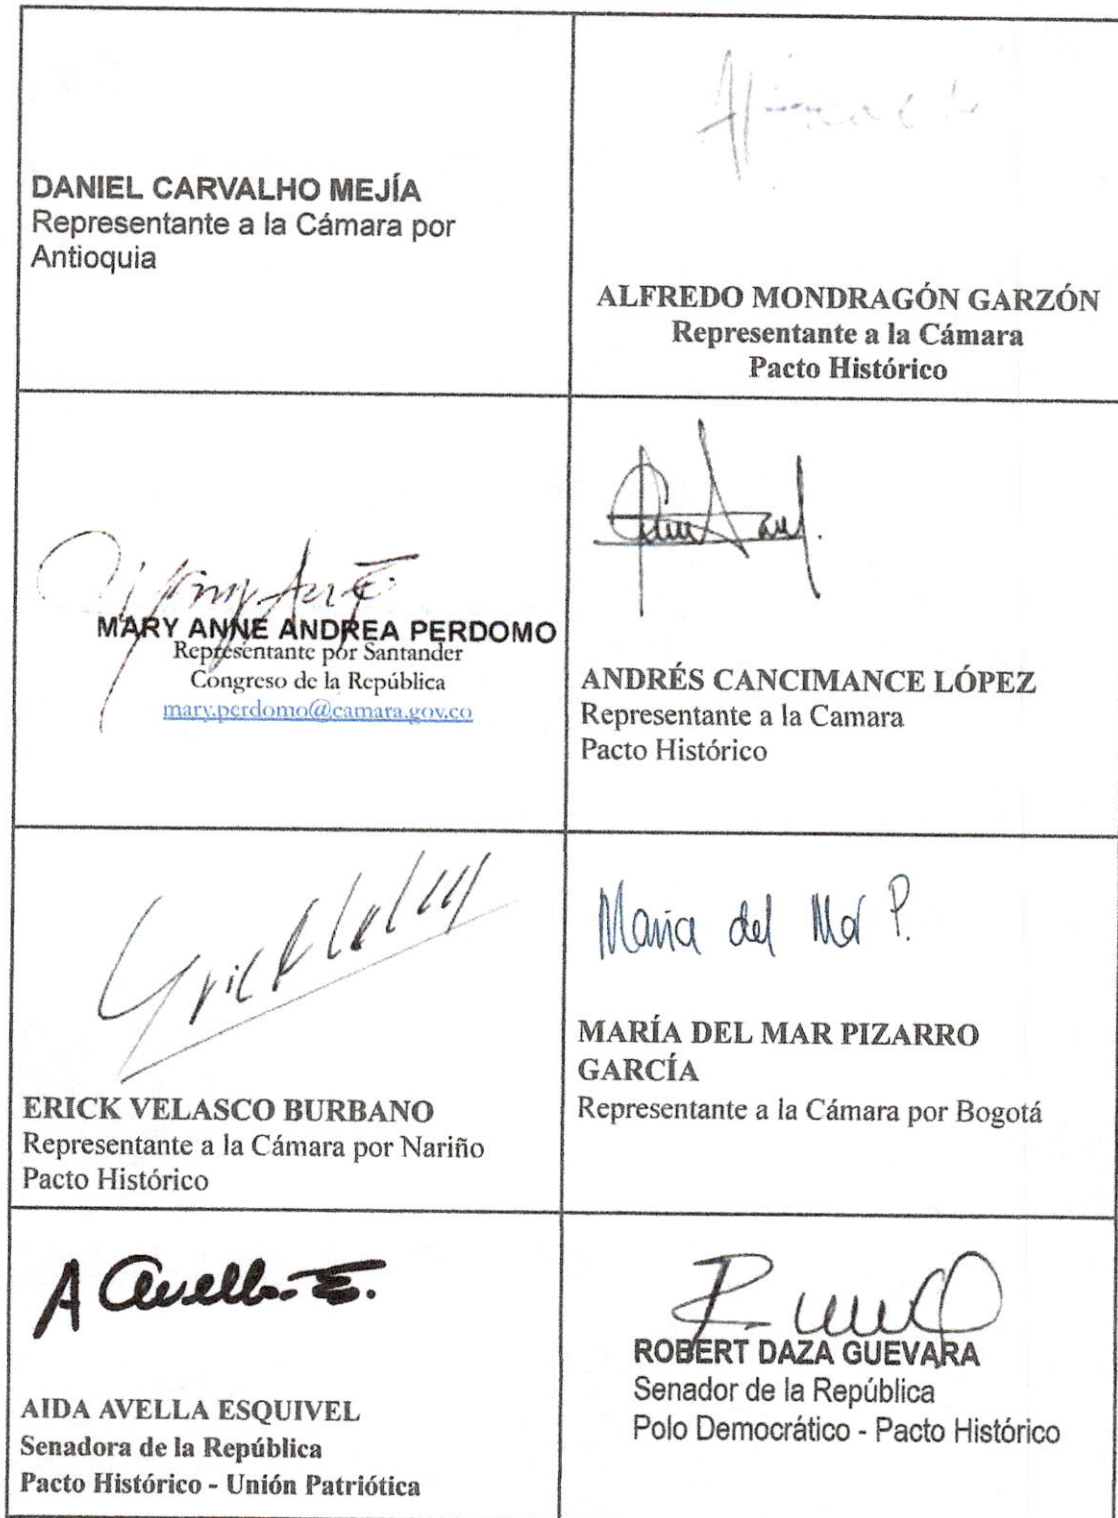 DANIEL CARVALHO MEJÍA
Representante a la Cámara por
Antioquia
ALFREDO MONDRAGÓN GARZÓN
Representante a la Cámara
Pacto Histórico
MARY ANNE ANDREA PERDOMO
Representante por Santander
Congreso de la República
mary.perdomo@camara.gov.co
ANDRÉS CANCIMANCE LÓPEZ
Representante a la Camara
Pacto Histórico
ERICK VELASCO BURBANO
Representante a la Cámara por Nariño
Pacto Histórico
Maria del Mar P.
MARÍA DEL MAR PIZARRO
GARCÍA
Representante a la Cámara por Bogotá
A Avella E.
AIDA AVELLA ESQUIVEL
Senadora de la República
Pacto Histórico - Unión Patriótica
ROBERT DAZA GUEVARA
Senador de la República
Polo Democrático - Pacto Histórico